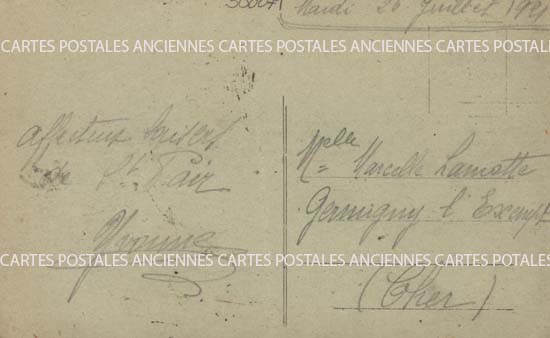 30007
Mardi 26 Juillet 1921
CARTES POSTALES ANCIENNES CARTES POSTALES ANCIENNES CARTES POSTALES
affectueux baisers
de St Pair
Yvonne
Melle Marcelle Lamotte
Germigny l'Exempt
(Cher)
CARTES POSTALES ANCIENNES CARTES POSTALES ANCIENNES CARTES POSTALES